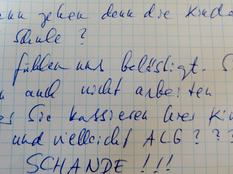 ann gehen denn die Kinde
Schule ?
fühlen uns belästigt. S
n auch nicht arbeiten
es Sie kassieren Ihr Kin
und vielleicht ALG ? ? ?
SCHANDE !!!